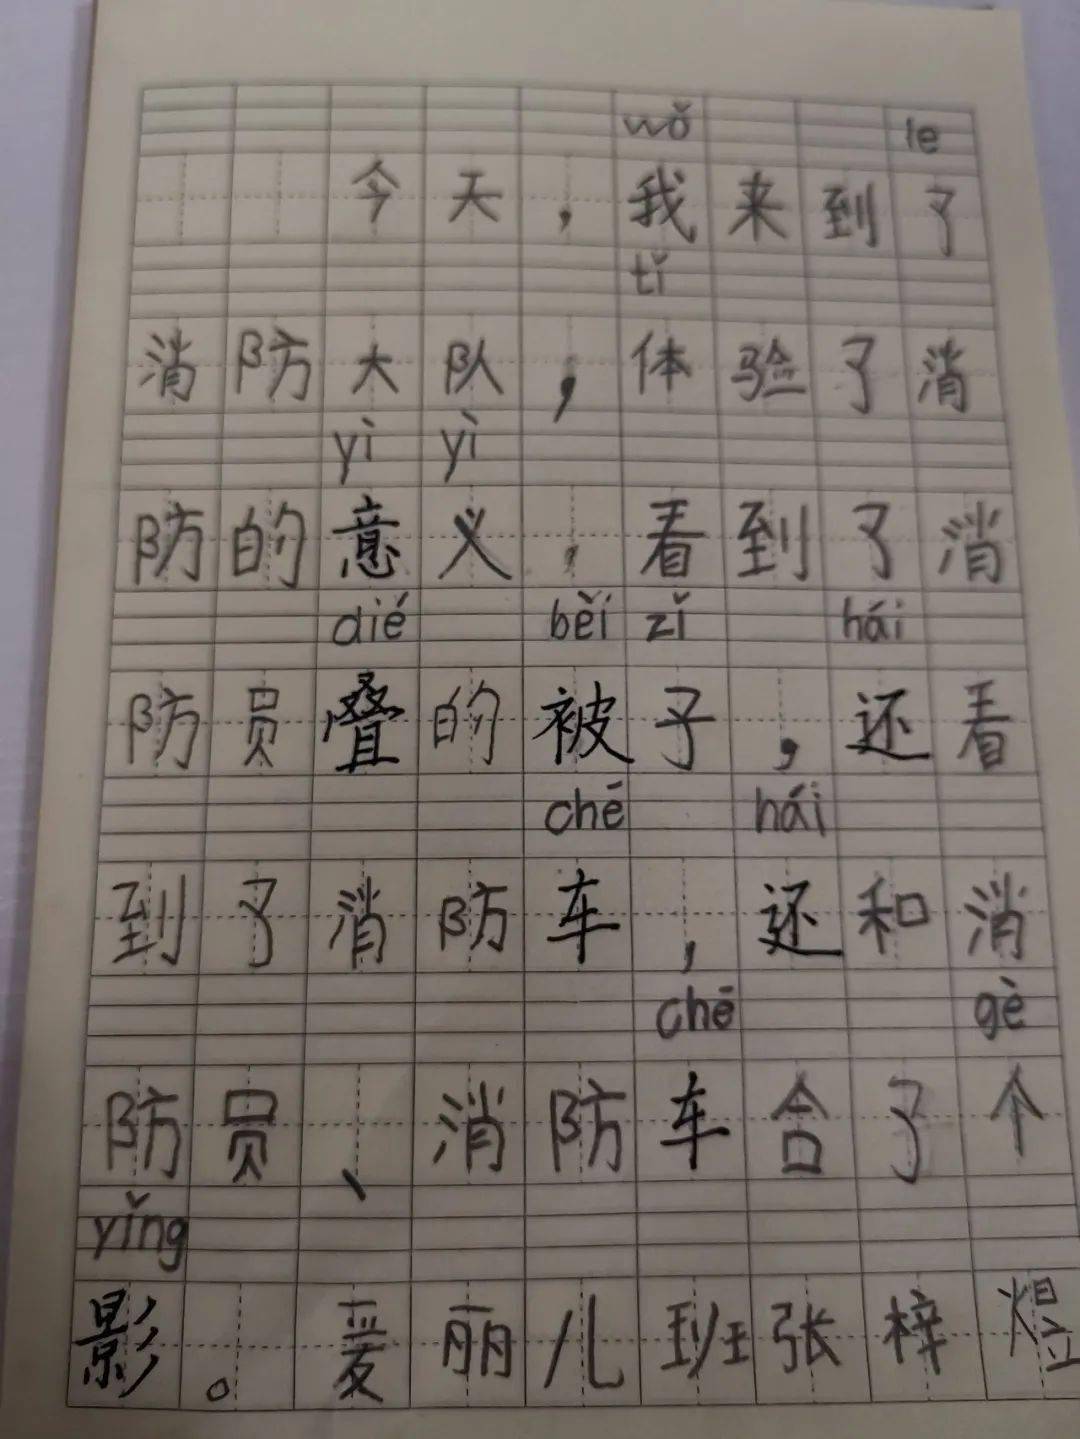 wǒ le
今天，我来到了
tǐ
消防大队，体验了消
yì yì
防的意义，看到了消
dié bèi zǐ hái
防员叠的被子，还看
chē hái
到了消防车，还和消
chē gè
防员、消防车合了个
yǐng
影。爱丽儿班张梓煜